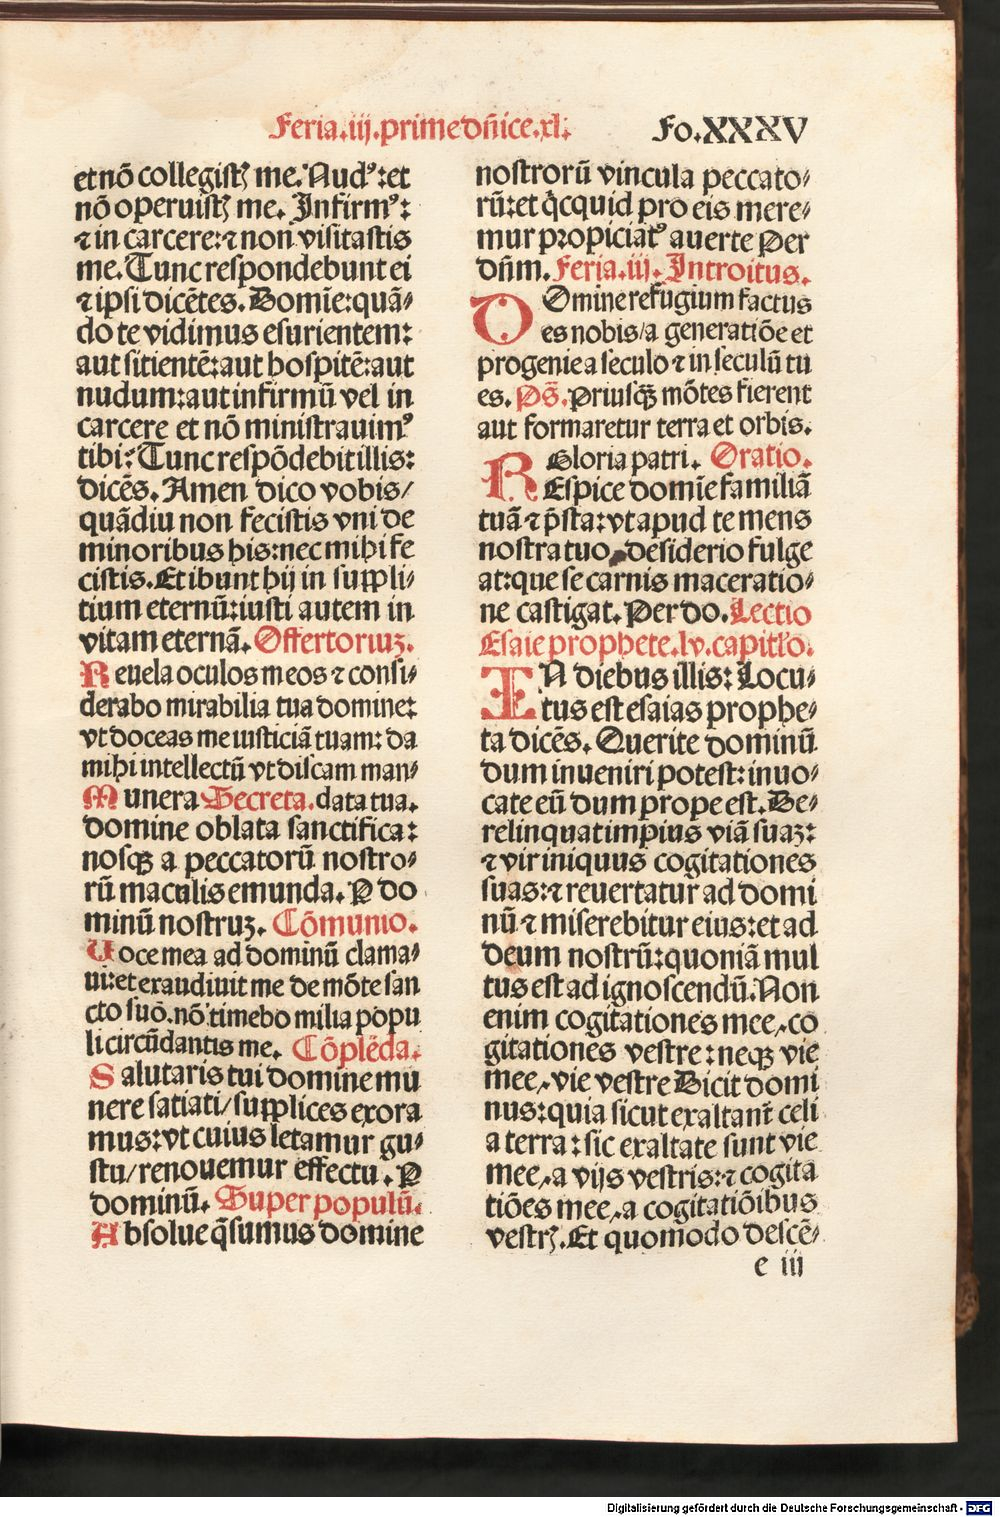 Feria.iij.prime dñice.xl.
Fo.XXXV
et nõ collegistꝭ me. Nudꝰ: et
nõ operuistꝭ me. Infirmꝰ:
⁊ in carcere: ⁊ non visitastis
me. Tunc respondebunt ei
⁊ ipsi dicẽtes. Domĩe: quã⸗
do te vidimus esurientem:
aut sitientẽ: aut hospitẽ: aut
nudum: aut infirmũ vel in
carcere et nõ ministrauimꝰ
tibi: Tunc respõdebit illis:
dicẽs. Amen dico vobis/
quãdiu non fecistis vni de
minoribus his: nec mihi fe
cistis. Et ibunt hij in suppli⸗
tium eternũ: iusti autem in
vitam eternã. Offertoriuꝫ.
Reuela oculos meos ⁊ consi⸗
derabo mirabilia tua domine:
vt doceas me iusticiã tuam: da
mihi intellectũ vt discam man⸗
Munera Secreta. data tua.
domine oblata sanctifica:
nosqꝫ a peccatorũ nostro⸗
rũ maculis emunda. P do
minũ nostruꝫ. Cõmunio.
Uoce mea ad dominũ clama⸗
ui: et exaudiuit me de mõte san
cto suo. nõ timebo milia popu
li circũdantis me. Cõplẽda.
Salutaris tui domine mu
nere satiati/ supplices exora
mus: vt cuius letamur gu⸗
stu/ renouemur effectu. P
dominũ. Super populũ.
Absolue q̃sumus domine
nostrorũ vincula peccato⸗
rũ: et q̇cquid pro eis mere⸗
mur propiciatꝰ auerte Per
dñm. Feria.iij. Introitus.
DOmine refugium factus
es nobis/ a generatiõe et
progenie a seculo ⁊ in seculũ tu
es. Ps̃. Priusqꝫ mõtes fierent
aut formaretur terra et orbis.
Gloria patri. Oratio.
REspice domĩe familiã
tuã ⁊ p̃sta: vt apud te mens
nostra tuo desiderio fulge
at: que se carnis maceratio⸗
ne castigat. Per do. Lectio
Esaie prophete.lv.capitło.
IN diebus illis: Locu⸗
tus est esaias prophe⸗
ta dicẽs. Querite dominũ
dum inueniri potest: inuo⸗
cate eũ dum prope est. De⸗
relinquat impius viã suaꝫ:
⁊ vir iniquus cogitationes
suas: ⁊ reuertatur ad domi
nũ ⁊ miserebitur eius: et ad
deum nostrũ: quoniã mul
tus est ad ignoscendũ. Non
enim cogitationes mee, co
gitationes vestre: neqꝫ vie
mee, vie vestre Dicit domi
nus: quia sicut exaltant̃ celi
a terra: sic exaltate sunt vie
mee, a vijs vestris: ⁊ cogita
tiões mee, a cogitatiõibus
vestrꝭ. Et quomodo descẽ⸗
e iii
Digitalisierung gefördert durch die Deutsche Forschungsgemeinschaft - DFG